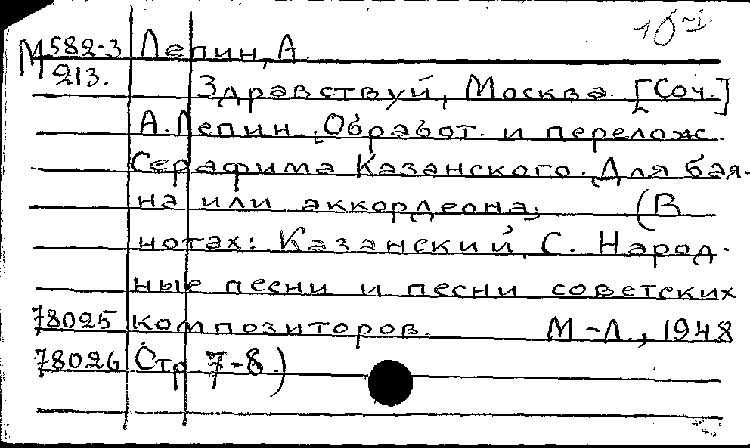 М 582-3 Лепин, А
213.
Здравствуй, Москва [Соч.]
А. Лепин. Обработ. и перелож.
Серафима Казанского. Для бая-
на или аккордеона. (В
нотах: Казанский, С. Народ-
ные песни и песни советских
78025 композиторов. М-Л., 1948
78026 Стр 7-8.)